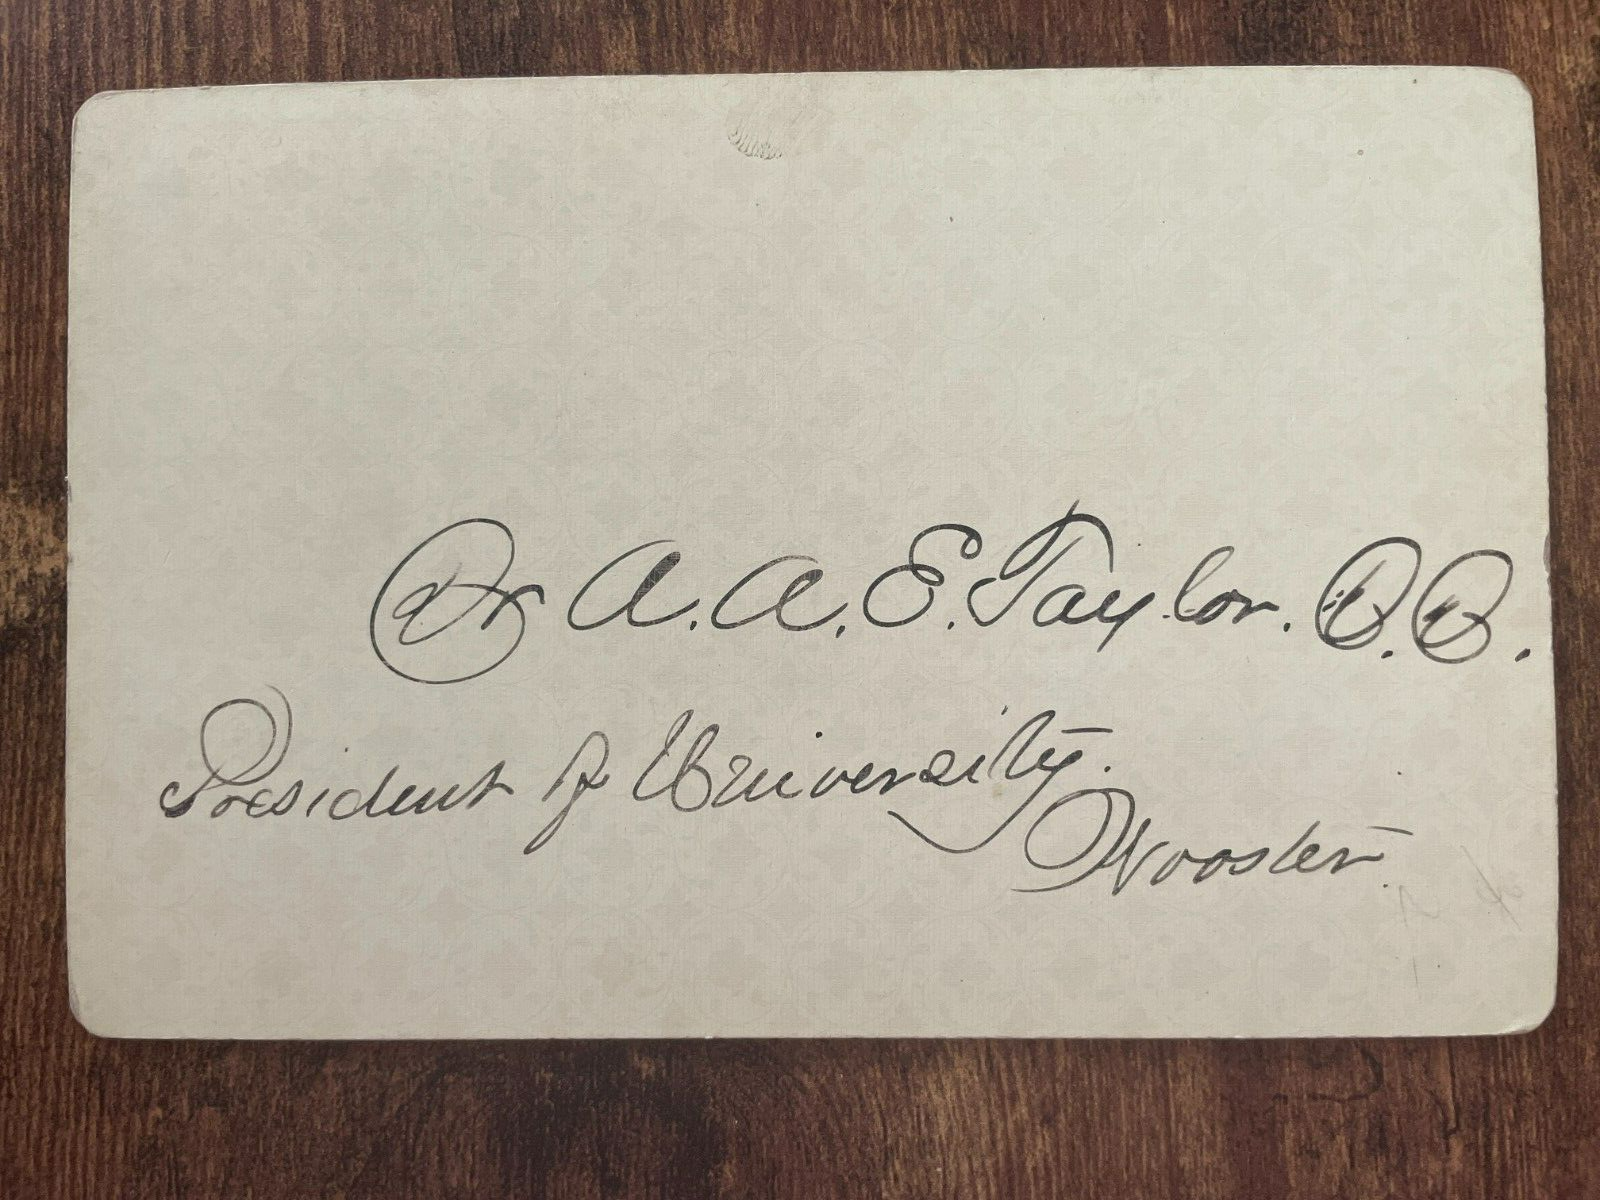 Dr A. A. E. Taylor. D. D.
President of University.
Wooster.